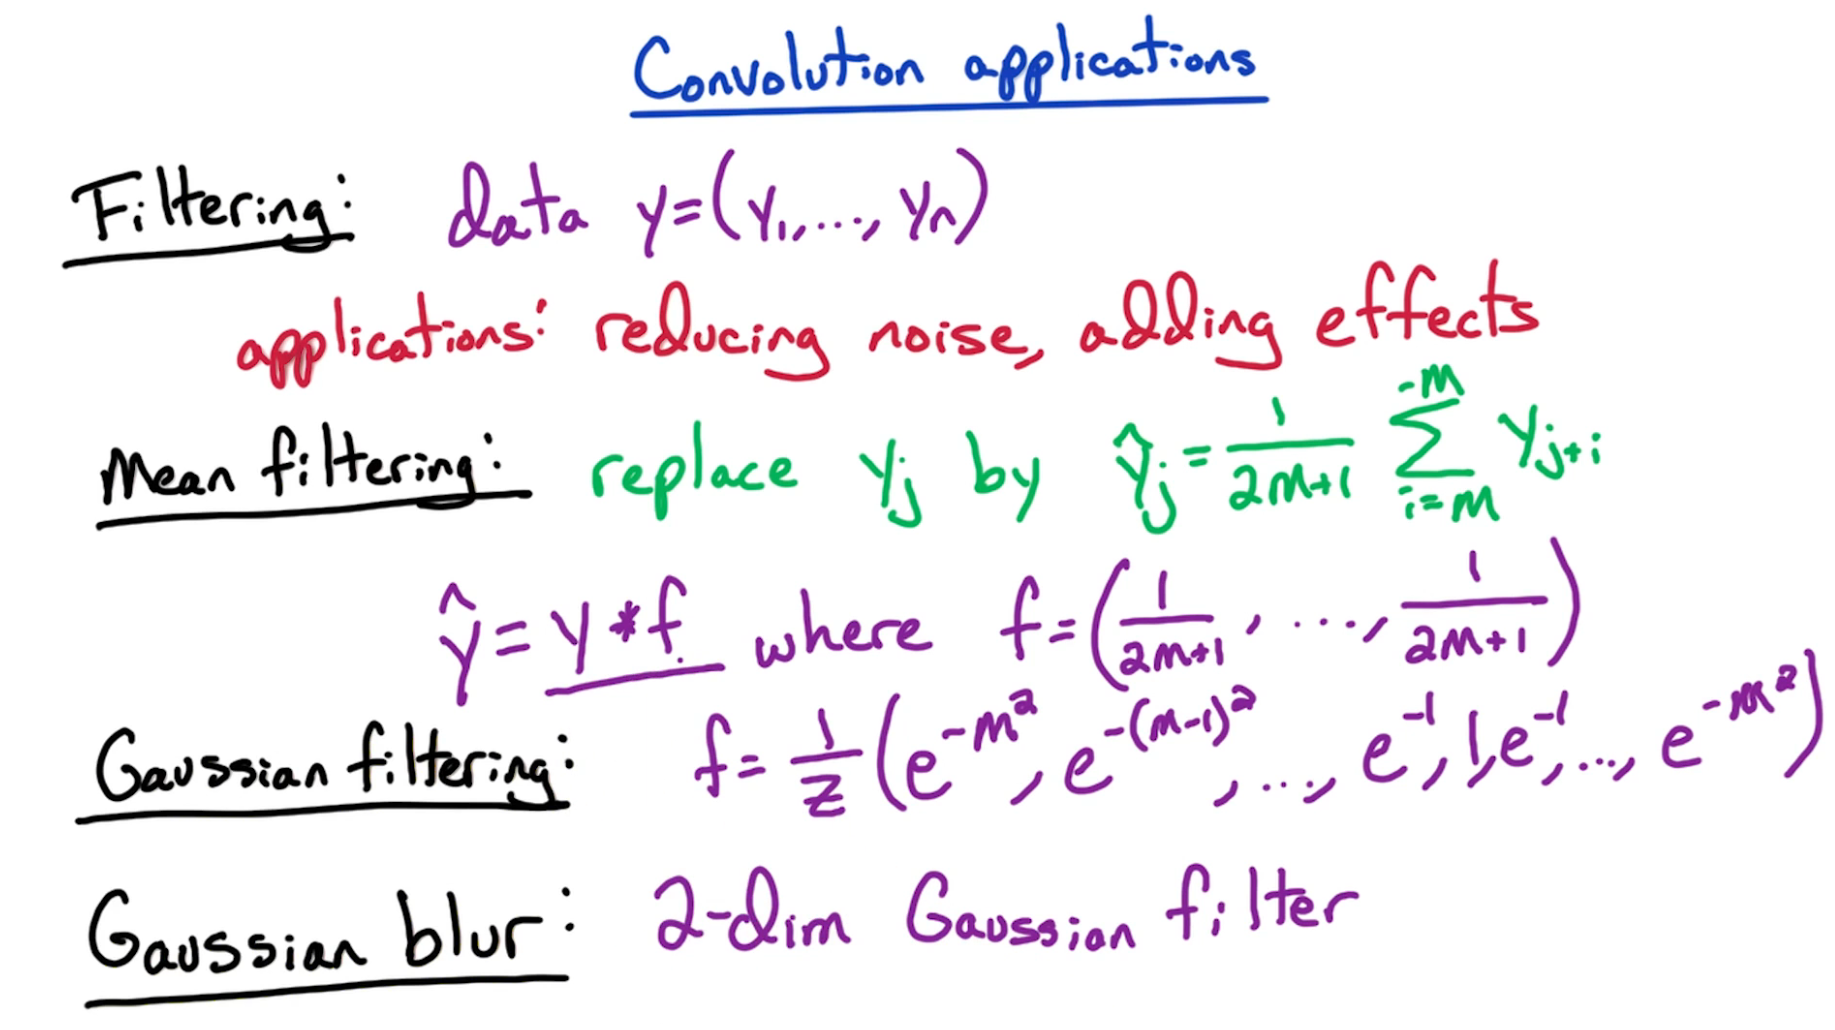 Convolution applications
Filtering: data y=(y₁,..., yₙ)
applications: reducing noise, adding effects
Mean filtering: replace yⱼ by ŷⱼ = 1/(2m+1) ∑_{i=m}^{-m} yⱼ₊ᵢ
ŷ = y * f where f = (1/(2m+1), ..., 1/(2m+1))
Gaussian filtering: f = 1/Z (e^{-m²}, e^{-(m-1)²}, ..., e^{-1}, 1, e^{-1}, ..., e^{-m²})
Gaussian blur: 2-dim Gaussian filter